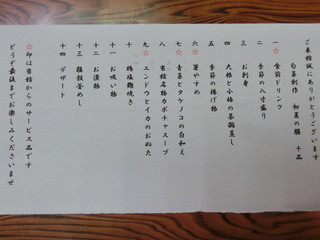 ご来館誠にありがとうございます
旬菜創作 初夏の膳 十品
一 ☆ 食前ドリンク
二 季節の八寸盛り
三 お刺身
四 大根と小柱の茶碗蒸し
五 季節の揚げ物
六 ☆ 箸やすめ
七 ☆ 青菜とタケノコの白和え
八 当館名物カボチャスープ
九 ☆ エンドウとイカのおぬた
十 鶏塩麹焼き
十一 お吸い物
十二 お漬物
十三 雑穀釜めし
十四 デザート
☆印は当館からのサービス品です
どうぞ最後までお楽しみくださいませ